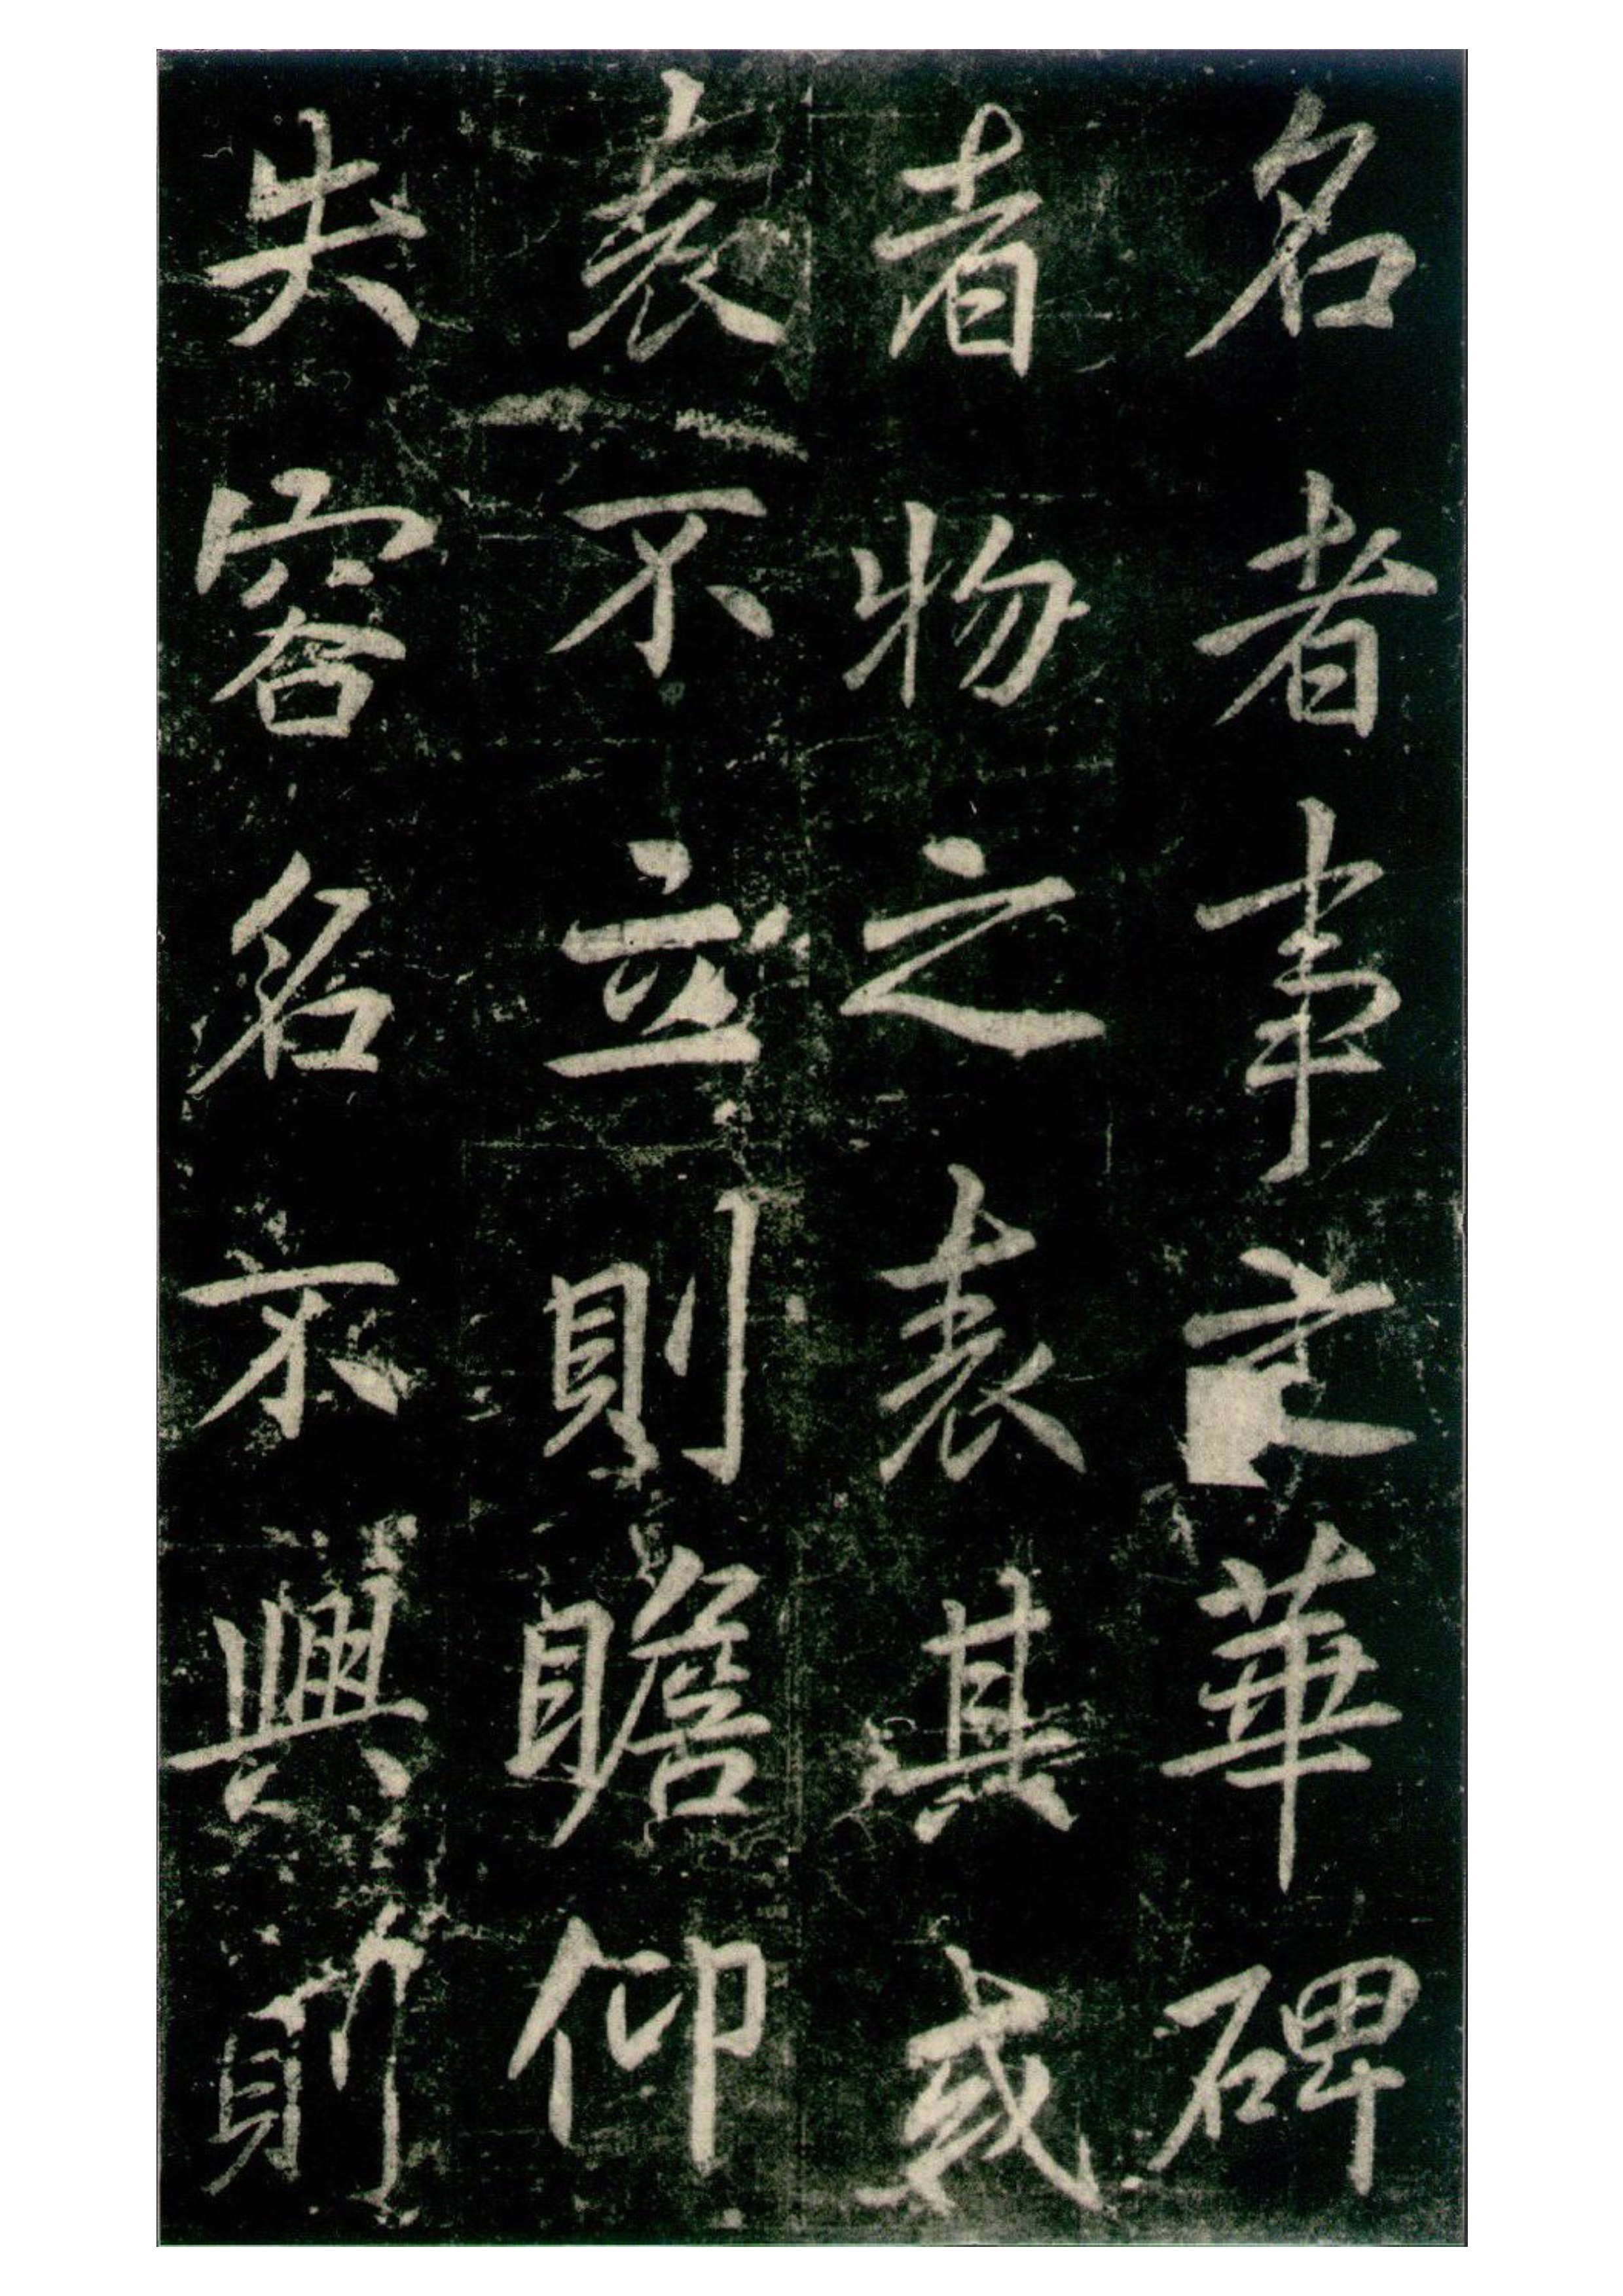 名者事之華碑
者物之表其或
表不立則瞻仰
失容名不興則